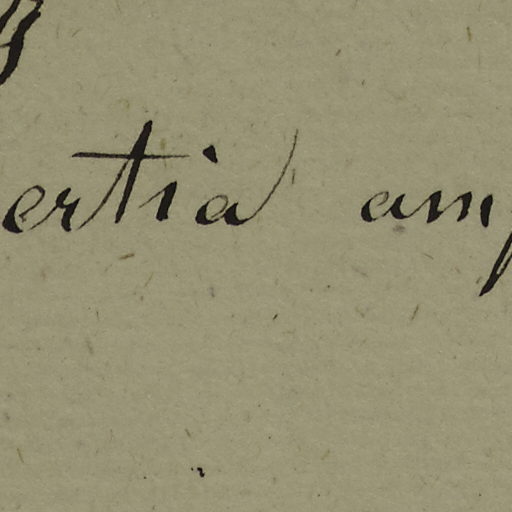 ertia amp